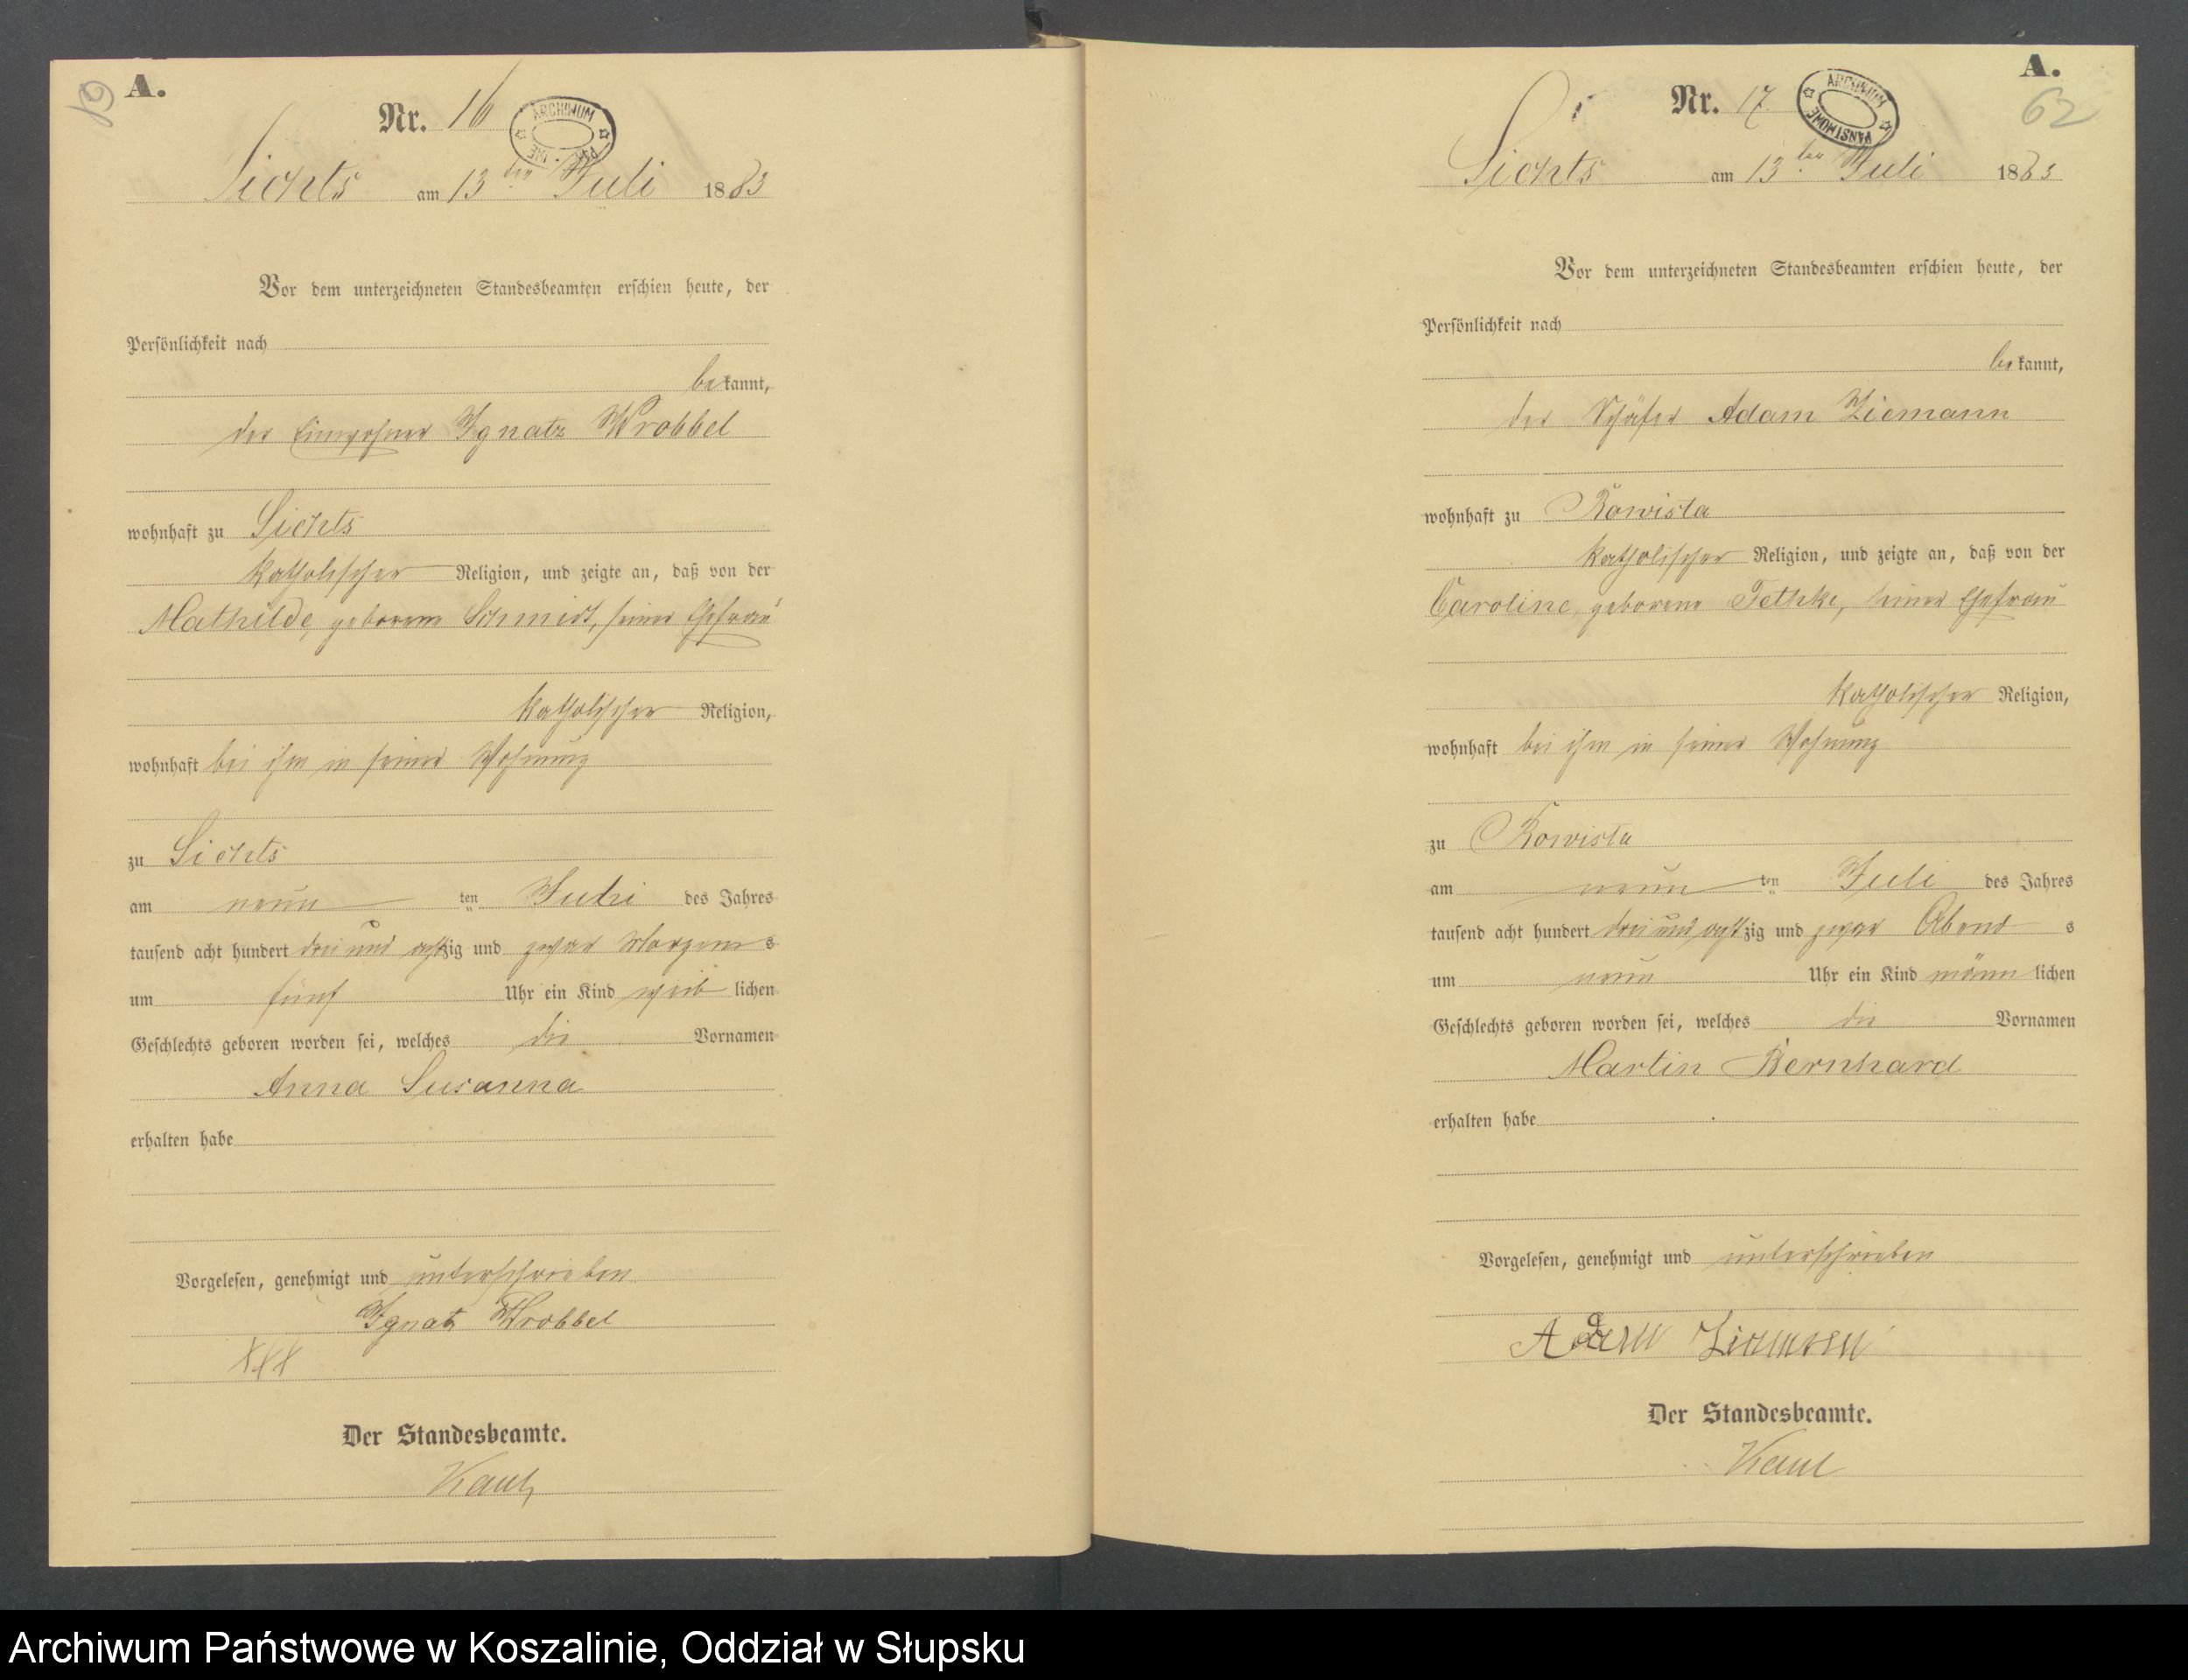 61
A.
Nr. 16
ARCHIWUM
Lichts am 13ten Juli 1883
Vor dem unterzeichneten Standesbeamten erschien heute, der
Persönlichkeit nach
bekannt,
der Einwohner Ignatz Wrobbel
wohnhaft zu Lichts
katholischer Religion, und zeigte an, daß von der
Mathilde, geborene Schmidt, seiner Ehefrau
katholischer Religion,
wohnhaft bei ihm in seiner Wohnung
zu Lichts
am neun ten Juli des Jahres
tausend acht hundert drei und achtzig und zwar Morgens
um fünf Uhr ein Kind weiblichen
Geschlechts geboren worden sei, welches die Vornamen
Anna Susanna
erhalten habe
Vorgelesen, genehmigt und unterschrieben
Ignatz Wrobbel
XXX
Der Standesbeamte.
A.
Nr. 17
ARCHIWUM PAŃSTWOWE
62
Lichts am 13ten Juli 1883
Vor dem unterzeichneten Standesbeamten erschien heute, der
Persönlichkeit nach
bekannt,
der Schäfer Adam Ziemann
wohnhaft zu Rowista
katholischer Religion, und zeigte an, daß von der
Caroline, geborene Fethke, seiner Ehefrau
katholischer Religion,
wohnhaft bei ihm in seiner Wohnung
zu Rowista
am neun ten Juli des Jahres
tausend acht hundert drei und achtzig und zwar Abends
um neun Uhr ein Kind männlichen
Geschlechts geboren worden sei, welches die Vornamen
Martin Bernhard
erhalten habe
Vorgelesen, genehmigt und unterschrieben
Adam Ziemann
Der Standesbeamte.
Archiwum Państwowe w Koszalinie, Oddział w Słupsku